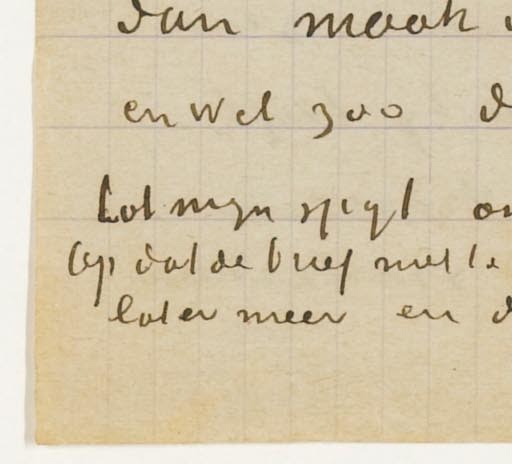 dan maak
en wel zoo d
tot mijn spijt on
Op dat de brief niet te
later meer en d